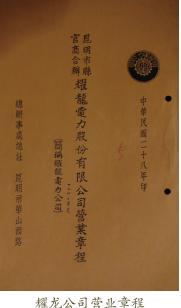 中華民國二十八年印
昆明市縣
官商合辦
耀龍電力股份有限公司營業章程
(簡稱耀龍電力公司)
總辦事處地址 昆明市華山西路
耀龙公司营业章程